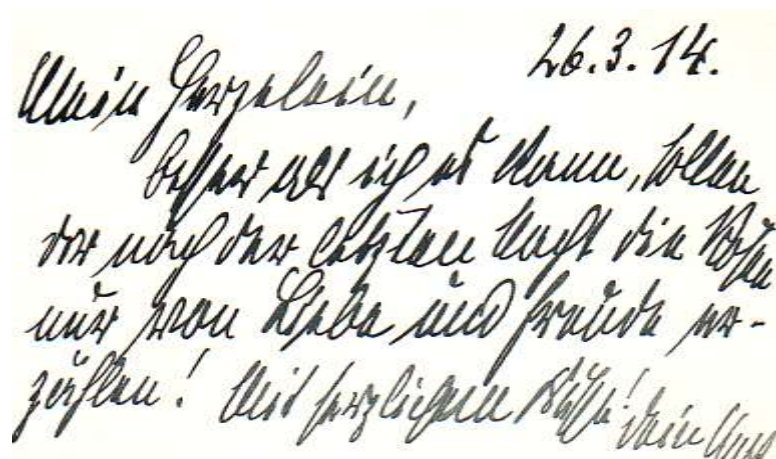 26.3.14.
Mein Herzelein,
besser als ich es kann, sollen
dir nach der letzten Nacht die
nur von Liebe und Freude er-
zählen! Mit herzlichem Dein